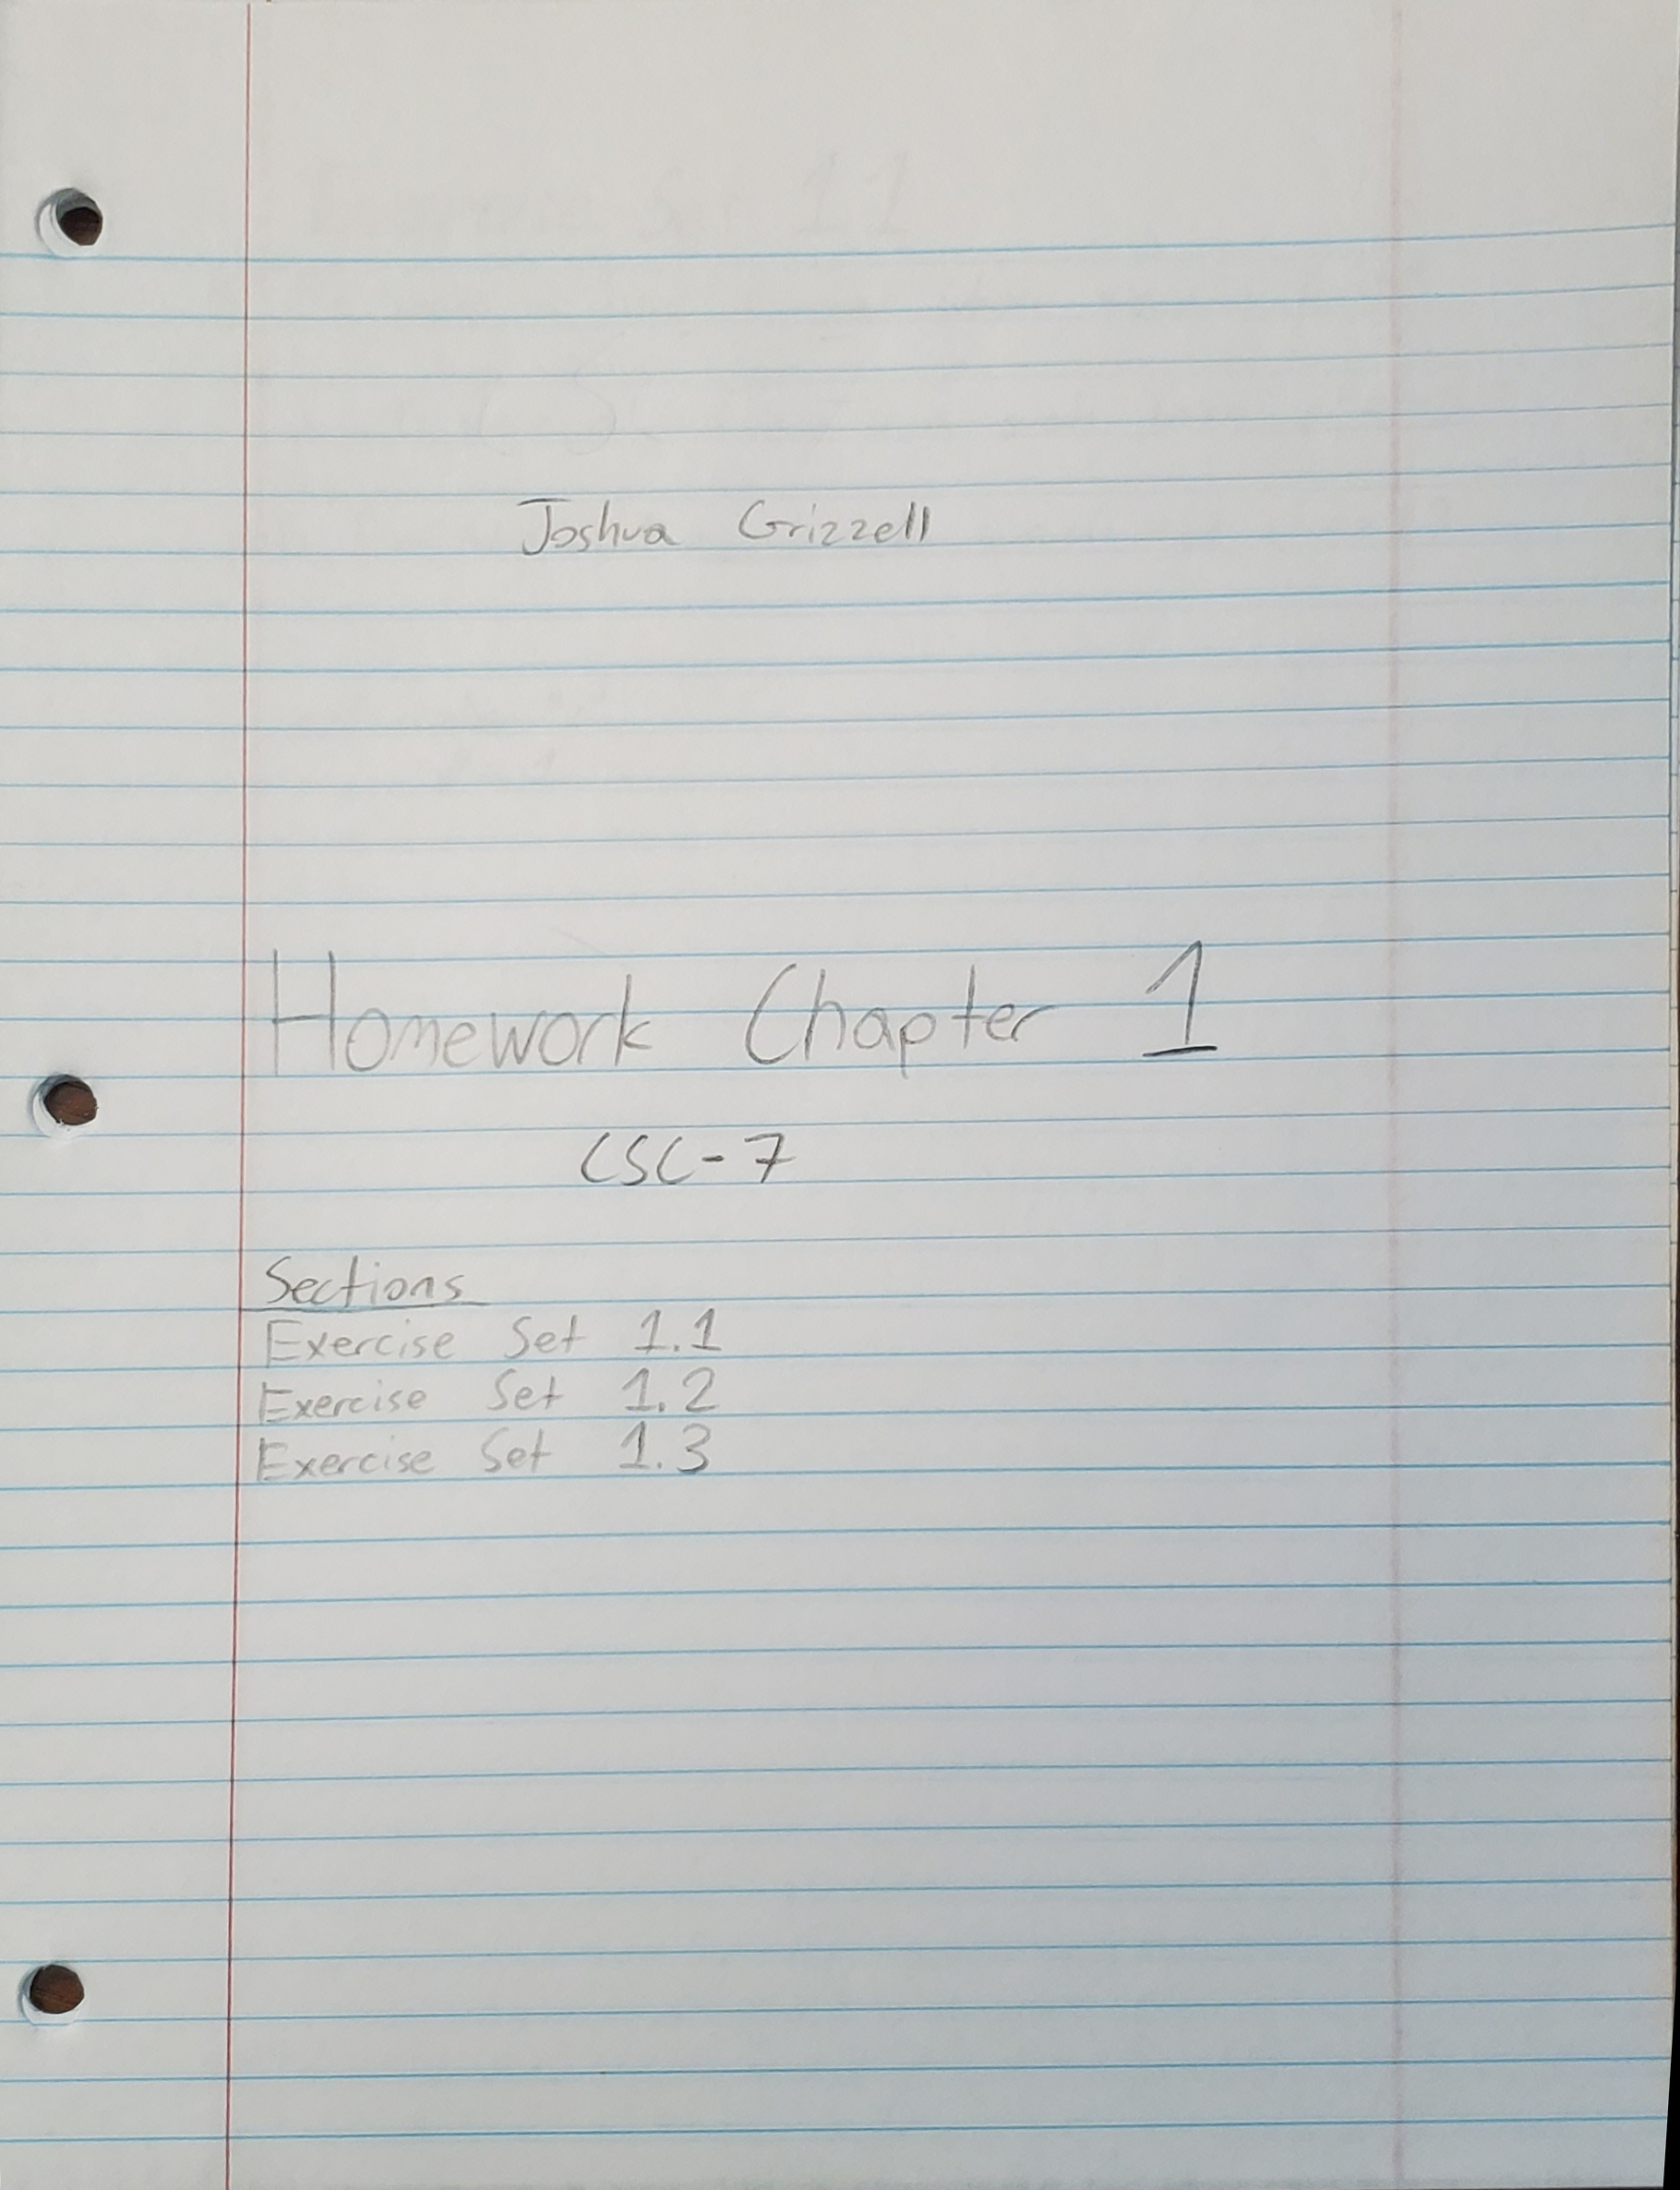 Joshua Grizzell
Homework Chapter 1
CSC-7
Sections
Exercise Set 1.1
Exercise Set 1.2
Exercise Set 1.3